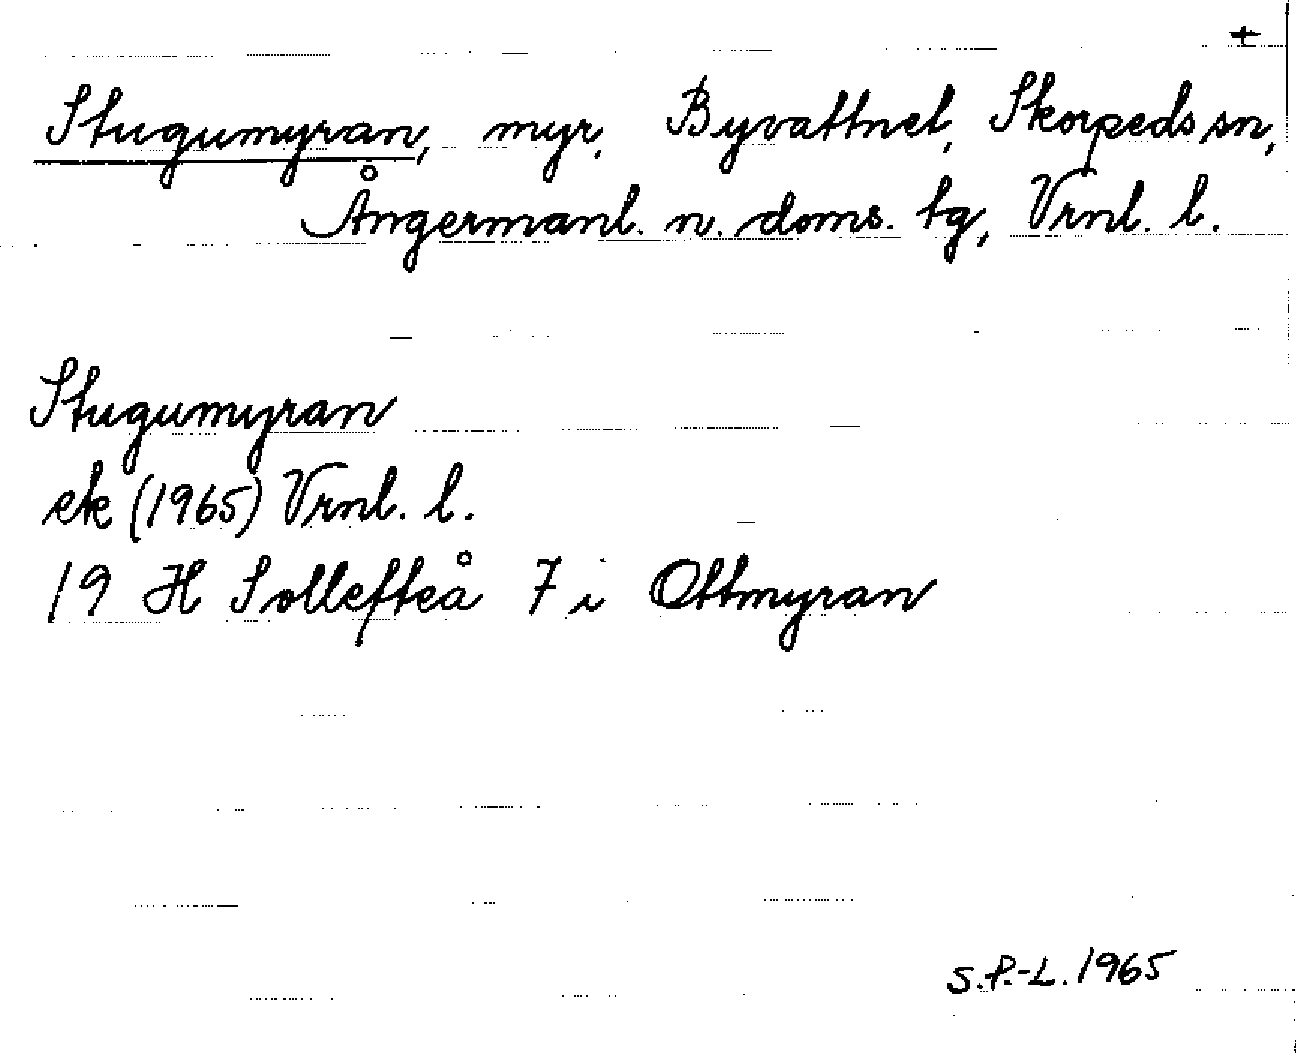 +
Stugumyran, myr, Byvattnet, Skorpeds sn,
Ångermanl. n. doms. tg, Vrnl. l.
Stugumyran
ek (1965) Vrnl. l.
19 H Sollefteå 7 i Ottmyran
S.P.-L. 1965